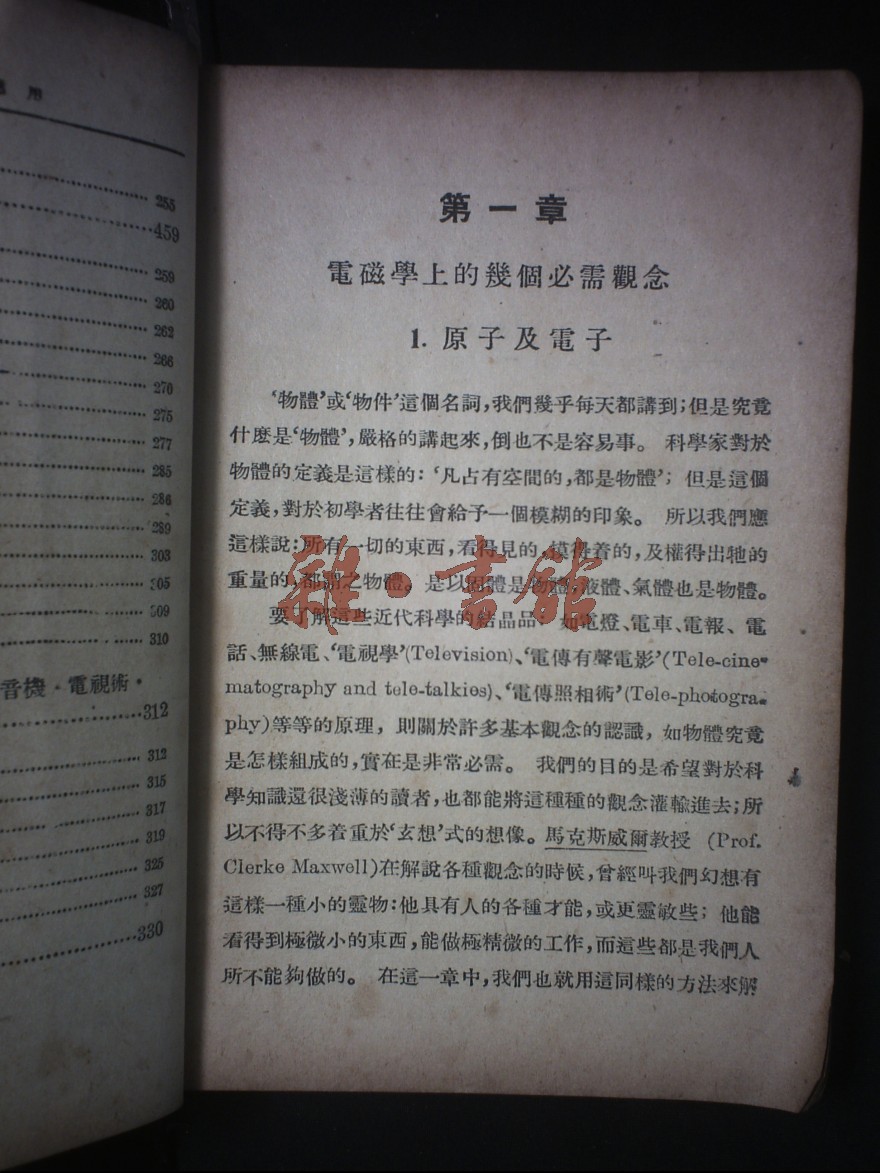 用
255
459
259
260
262
266
270
275
277
285
286
289
303
305
309
310
音機·電視術·
312
312
315
317
319
325
327
330
第一章
電磁學上的幾個必需觀念
1. 原子及電子
‘物體’或‘物件’這個名詞,我們幾乎每天都講到;但是究竟
什麼是‘物體’,嚴格的講起來,倒也不是容易事。 科學家對於
物體的定義是這樣的:‘凡占有空間的,都是物體’; 但是這個
定義,對於初學者往往會給予一個模糊的印象。 所以我們應
這樣說:所有一切的東西,看得見的,摸得着的,及權得出牠的
重量的,都謂之物體。是以固體是物體,液體、氣體也是物體。
要了解這些近代科學的結晶品 如電燈、電車、電報、電
話、無線電、‘電視學’(Television)、‘電傳有聲電影’(Tele-cine-
matography and tele-talkies)、‘電傳照相術’(Tele-photogra-
phy)等等的原理, 則關於許多基本觀念的認識, 如物體究竟
是怎樣組成的,實在是非常必需。 我們的目的是希望對於科
學知識還很淺薄的讀者,也都能將這種種的觀念灌輸進去;所
以不得不多着重於‘玄想’式的想像。馬克斯威爾教授 (Prof.
Clerke Maxwell)在解說各種觀念的時候,曾經叫我們幻想有
這樣一種小的靈物:他具有人的各種才能,或更靈敏些; 他能
看得到極微小的東西,能做極精微的工作,而這些都是我們人
所不能夠做的。 在這一章中,我們也就用這同樣的方法來解
雜·書館